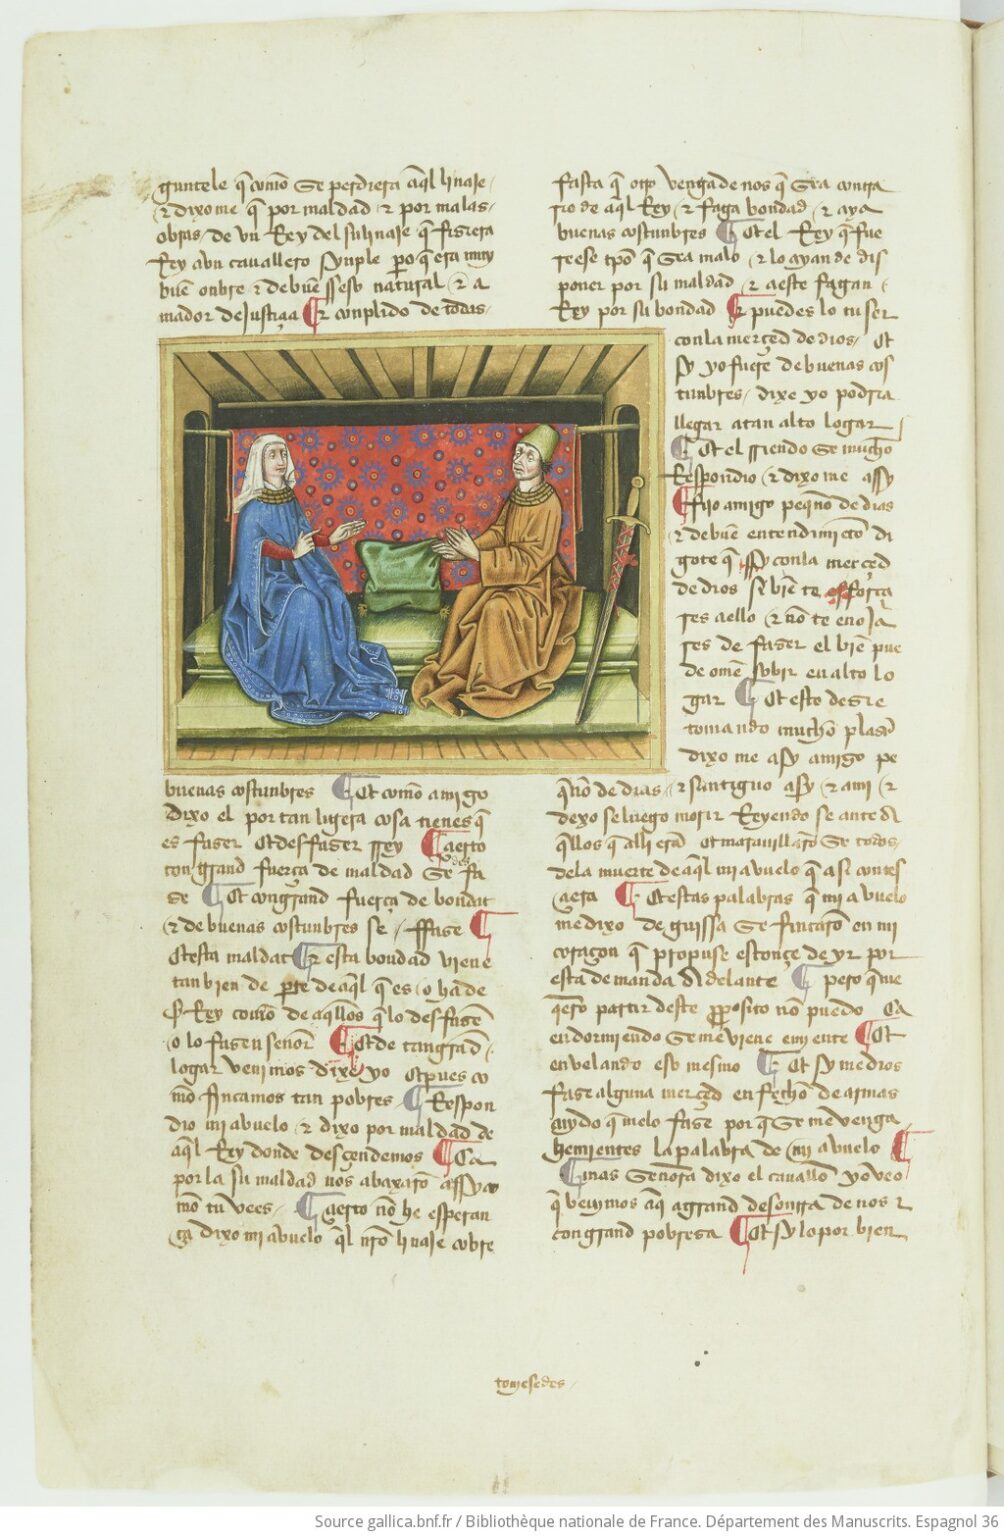 guntele q̃ como se perdiera aq̃l linaje
⁊ dixome q̃ por maldad ⁊ por malas
obras de vn Rey del su linaje q̃ fisiera
Rey a vn cauallero synple pero q̃ era muy
buẽ onbre ⁊ de buẽ sseso natural ⁊ a
mador de justiçia ⁊ conplido de todas
buenas costunbres Et como amigo
dixo el por tan ligera cosa tienes q̃
es faser et desfaser rrey çierto
con grand fuerça de maldad se des fa
se Et con grand fuerça de bondat
⁊ de buenas costunbres se ffase
Et esta maldat ⁊ esta bondad viene
tan bien de parte de aq̃l q̃ es o ha de
ser Rey como de aq̃llos q̃ lo desfasen
o lo fasen señor Et de tan grad
logar venimos dixe yo et pues co
mo fincamos tan pobres Respon
dio mi abuelo ⁊ dixo por maldad de
aq̃l Rey donde desçendemos Ca
por la su maldad nos abaxarõ assy co
mo tu vees çierto nõ he esperan
ça dixo mi abuelo q̃l nr̃o linaje cobre
fasta q̃ otro venga de nos q̃ sea contra
rio de aq̃l Rey ⁊ faga bondad ⁊ aya
buenas costunbres Et el Rey q̃ fue
re ese tpõ q̃ sea malo ⁊ lo ayan de dis
poner por su maldad ⁊ a este fagan
Rey por su bondad ⁊ puedes lo tu ser
con la merçed de dios Et
sy yo fuese de buenas cos
tunbres dixe yo podria
llegar a tan alto logar
Et el rriendo se mucho
Respondio ⁊ dixo me assy
fijo amigo peq̃no de dias
⁊ de buẽ entendimiẽto di
gote q̃ ssy con la merçed
de dios si biẽ te esforça
res a ello ⁊ nõ te enoja
res de faser el biẽ pue
de ome subir en alto lo
gar Et esto desie
tomando mucho plaser
dixo me asy amigo pe
q̃no de dias ⁊ santiguo a sy ⁊ a mi ⁊
dexo se luego morir Reyendo se ante
aq̃llos q̃ alli erã et marauillarõ se todos
de la muerte de aq̃l mi abuelo q̃ asi contes
çiera Et estas palabras q̃ mi abuelo
me dixo de guissa se fincarõ en mi
coraçon q̃ propuse estonçe de yr por
esta demanda adelante pero q̃ me
q̃ero partir deste proposito nõ puedo Ca
en dormiendo se me viene emiente Et
en velando eso mesmo Et sy me dios
fase alguna merçed en fecho de armas
cuydo q̃ me lo fase por q̃ se me venga
hemientes la palabra de mi abuelo
mas señora dixo el cauallo yo veo
q̃ veuimos aq̃ a grand desonra de nos ⁊
con grand pobresa Et sy lo por bien
touiesedes
Source gallica.bnf.fr / Bibliothèque nationale de France. Département des Manuscrits. Espagnol 36